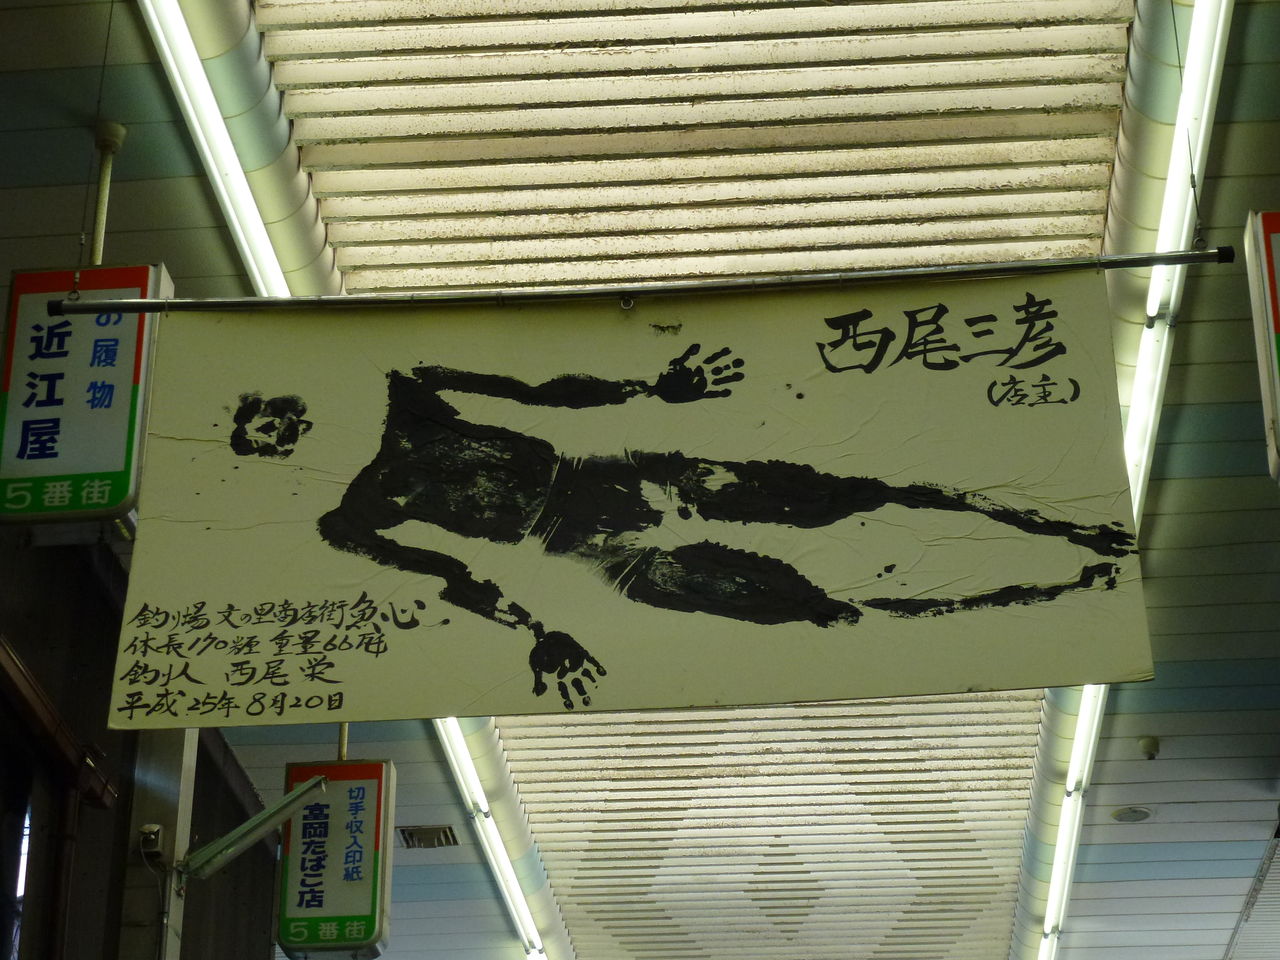 西尾三彦
(店主)
釣り場 文の里商店街魚心
体長170糎 重量66瓩
釣り人 西尾 栄
平成25年8月20日
お履物
近江屋
5番街
切手・収入印紙
富岡たばこ店
5番街